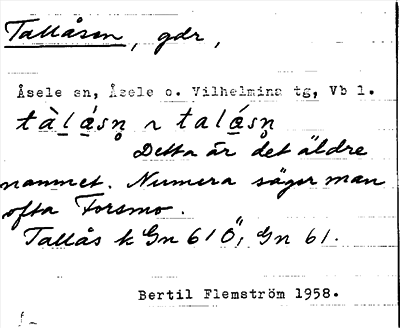 Tallåsen, gdr,
Åsele sn, Åsele o. Vilhelmina tg, Vb l.
tàlá̱sn̥ ~ talá̱sn̥
Detta är det äldre
namnet. Numera säger man
ofta Forsmo.
Tallås k Gn 61Ö, Gn 61.
Bertil Flemström 1958.